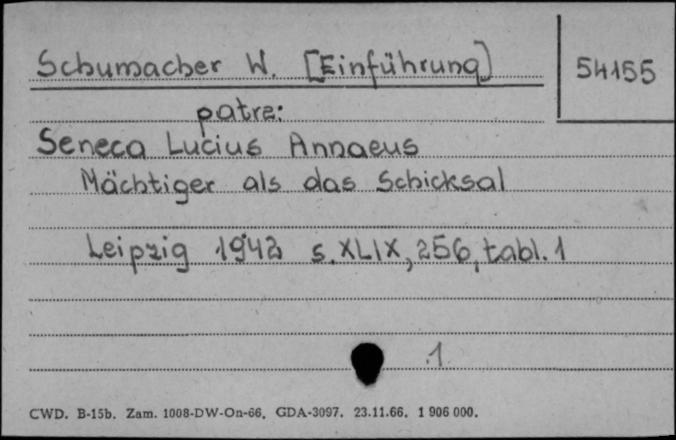 Schumacher W. [Einführung]
54155
patrz:
Seneca Lucius Annaeus
Mächtiger als das Schicksal
Leipzig 1942 s. XLIX, 256, tabl. 1
1
CWD. B-15b. Zam. 1008-DW-On-66. GDA-3097. 23.11.66. 1 906 000.